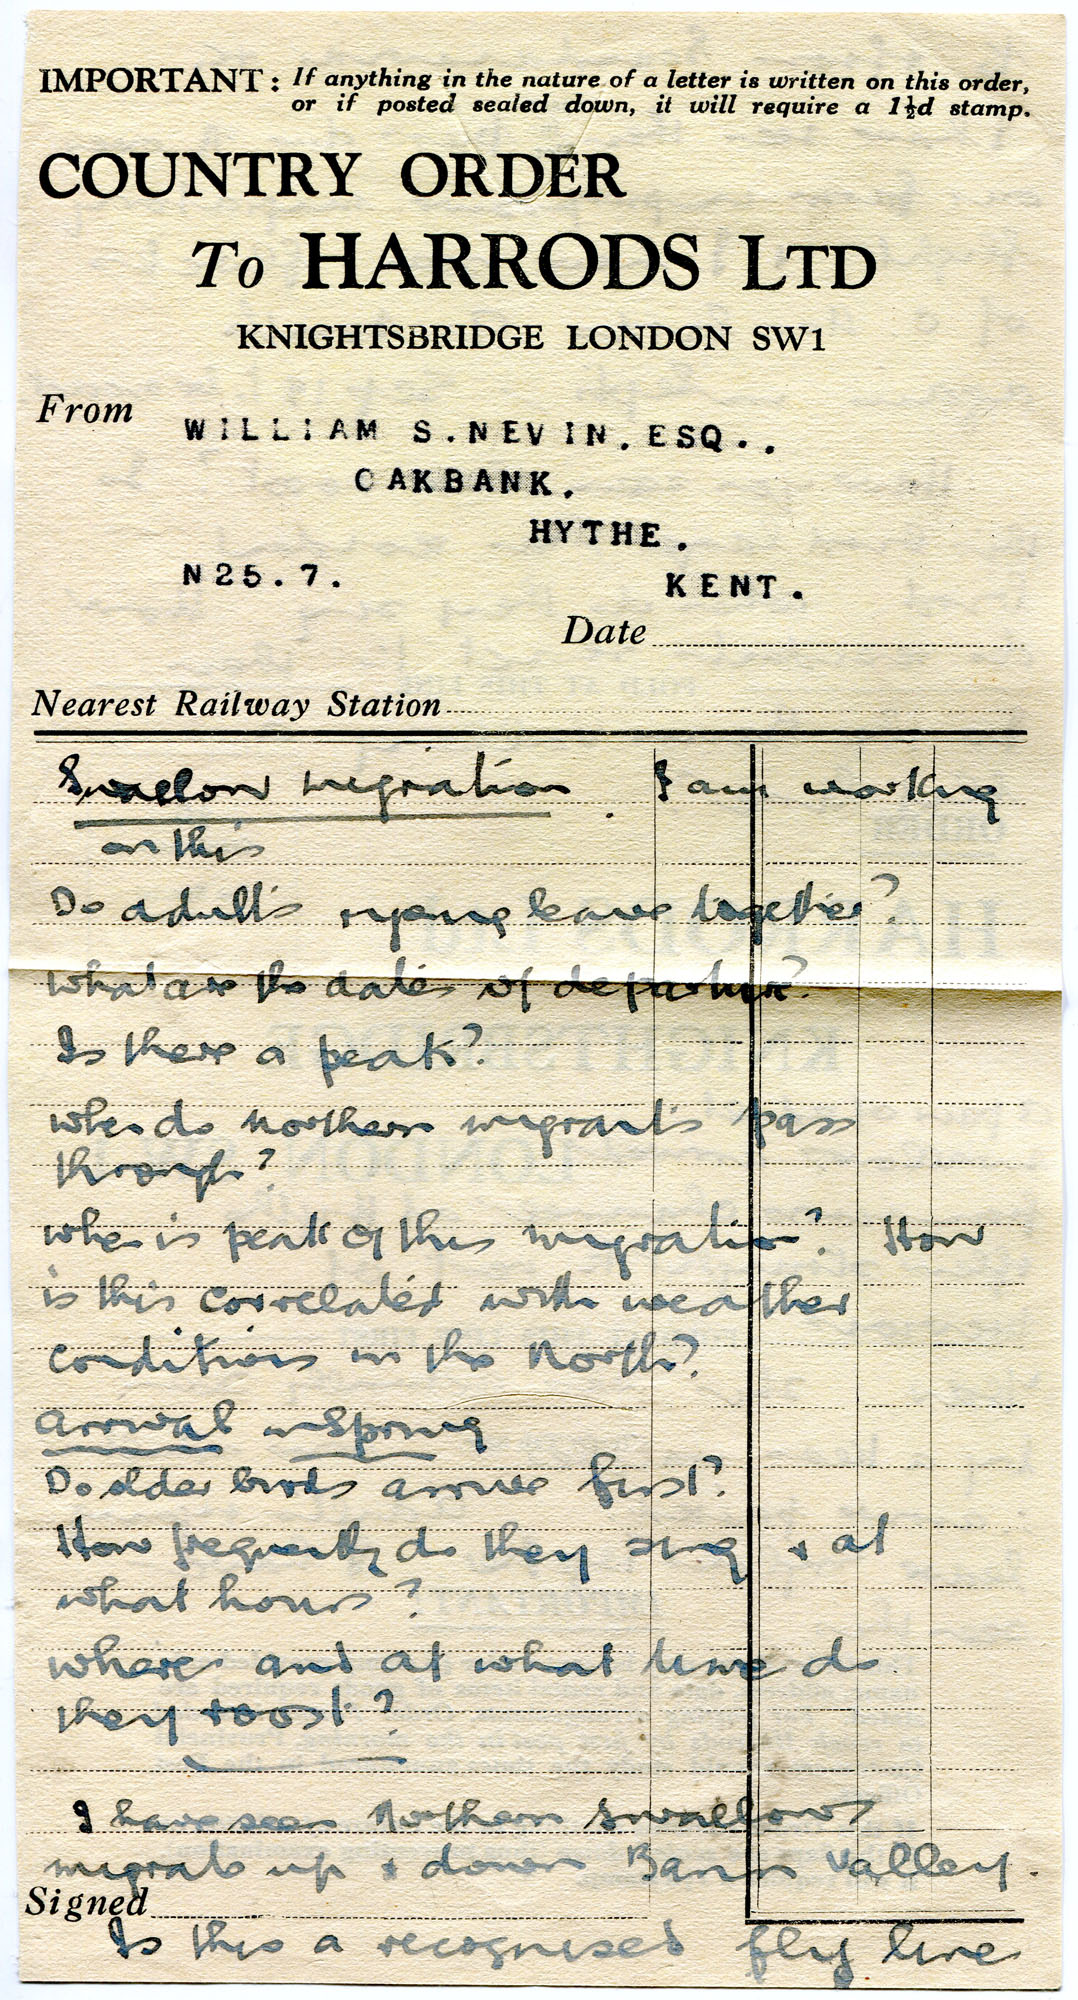 IMPORTANT: If anything in the nature of a letter is written on this order,
or if posted sealed down, it will require a 1½d stamp.
COUNTRY ORDER
To HARRODS LTD
KNIGHTSBRIDGE LONDON SW1
From
WILLIAM S.NEVIN.ESQ..
OAKBANK.
HYTHE.
N25.7.
KENT.
Date
Nearest Railway Station
Swallow migration. I am working
on this
Do adults & young leave together?
What are the dates of departure?
Is there a peak?
When do northern migrants pass
through?
When is peak of this migration? How
is this correlated with weather
conditions in the North?
Arrival in Spring
Do older birds arrive first?
How frequently do they sing & at
what hours?
Where and at what time do
they roost?
I have seen Northern Swallows
migrate up & down Bann Valley.
Signed
Is this a recognised fly line